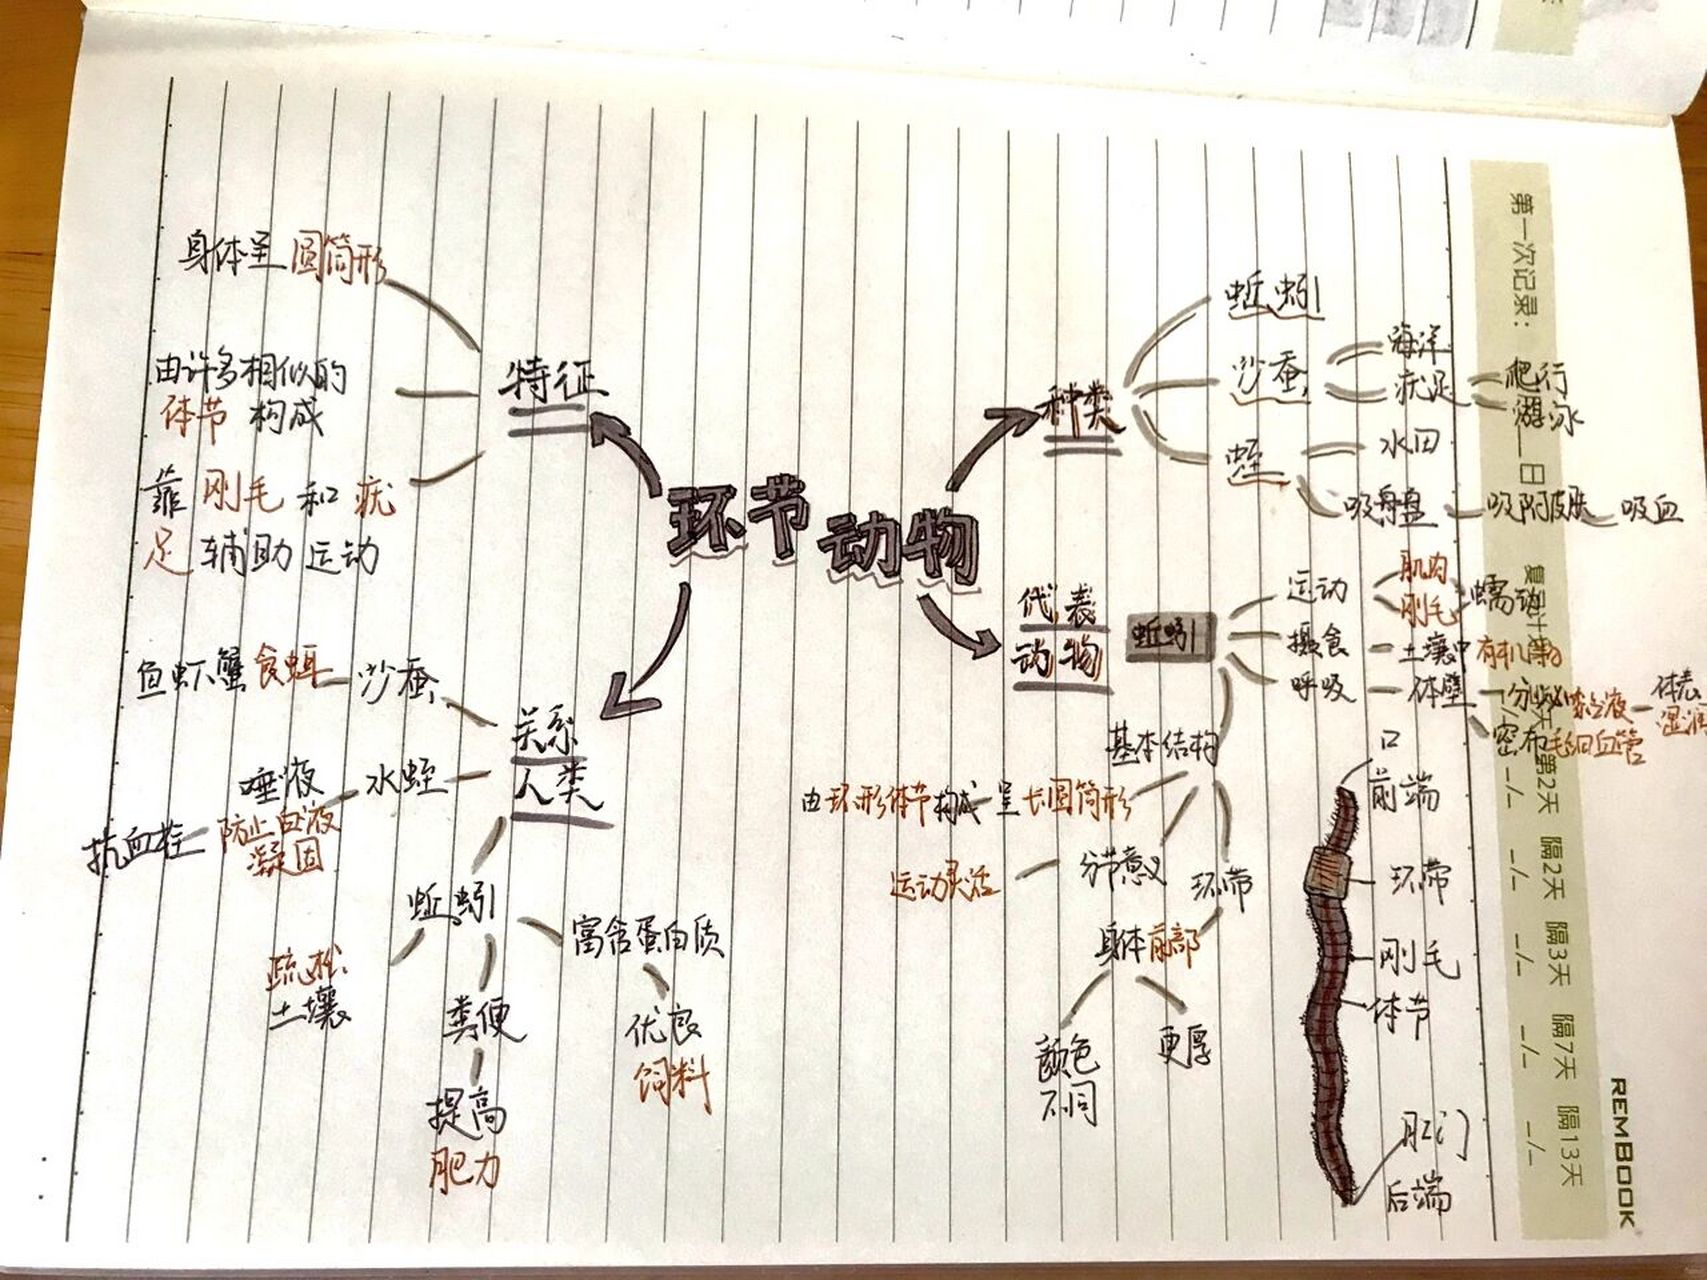 环节动物
特征
身体呈圆筒形
由许多相似的
体节构成
靠刚毛和疣
足辅助运动
种类
蚯蚓
沙蚕
海洋
疣足
爬行
游泳
蛭
水田
吸盘
吸附皮肤
吸血
代表
动物
蚯蚓
运动
肌肉
刚毛
蠕动
摄食
土壤中有机物
呼吸
体壁
分泌粘液
体表
湿润
密布毛细血管
基本结构
由环形体节构成
呈长圆筒形
分节意义
运动灵活
环带
身体前部
颜色
不同
更厚
口
前端
环带
刚毛
体节
肛门
后端
关系
人类
沙蚕
鱼虾蟹食饵
水蛭
唾液
防止血液
凝固
抗血栓
蚯蚓
疏松
土壤
粪便
提高
肥力
富含蛋白质
优良
饲料
第一次记录:
日
第2天
隔2天
隔3天
隔7天
隔13天
-/-
-/-
-/-
-/-
-/-
REMBOOK